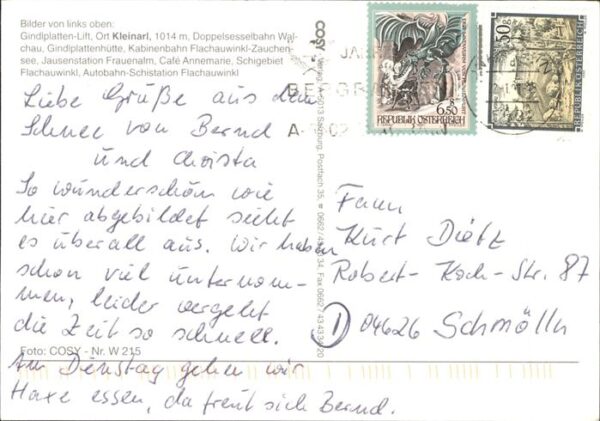 Bilder von links oben:
Gindlplatten-Lift, Ort Kleinarl, 1014 m, Doppelsesselbahn Wal-
chau, Gindlplattenhütte, Kabinenbahn Flachauwinkl-Zauchen-
see, Jausenstation Frauenalm, Café Annemarie, Schigebiet
Flachauwinkl, Autobahn-Schistation Flachauwinkl
Liebe Grüße aus dem
Schnee von Bernd
und Christa
So wunderschön wie
hier abgebildet sieht
es überall aus. Wir haben
schon viel unternom-
men, leider vergeht
die Zeit so schnell.
Foto: COSY - Nr. W 215
Am Dienstag gehen wir
Haxe essen, da freut sich Bernd.
COSY Verlag, A-5013 Salzburg, Postfach 35,
6.50
REPUBLIK ÖSTERREICH
50
REPUBLIK ÖSTERREICH
Fam
Kurt Dietz
Robert-Koch-Str. 87
D 04626 Schmölln